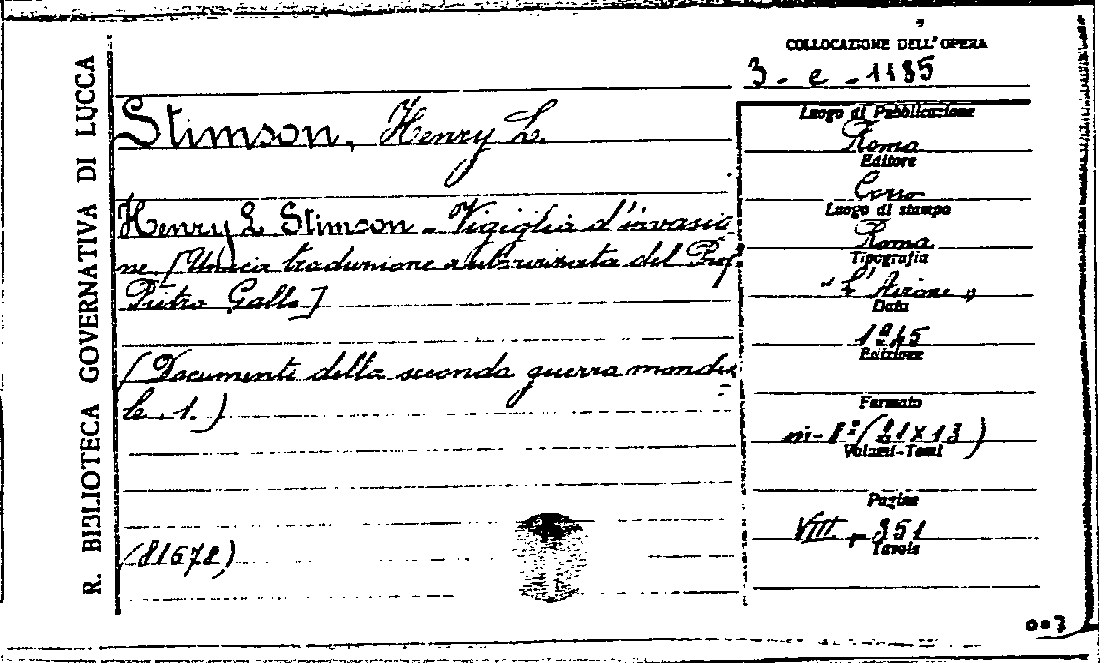 R. BIBLIOTECA GOVERNATIVA DI LUCCA
COLLOCAZIONE DELL'OPERA
3 - e - 1185
Stimson, Henry L.
Henry L Stimson - Vigiglia d'invasio
ne [Unica traduzione autorizzata del Prof
Pietro Gallo]
(Documenti della seconda guerra mondia
le. 1.)
(81678)
Luogo di Pubblicazione
Roma
Editore
Corso
Luogo di stampa
Roma
Tipografia
"L'Airone"
Data
1945
Edizione
Formato
in-8° (21 X 13)
Volumi-Tomi
Pagine
VIII - 351
Tavole
003